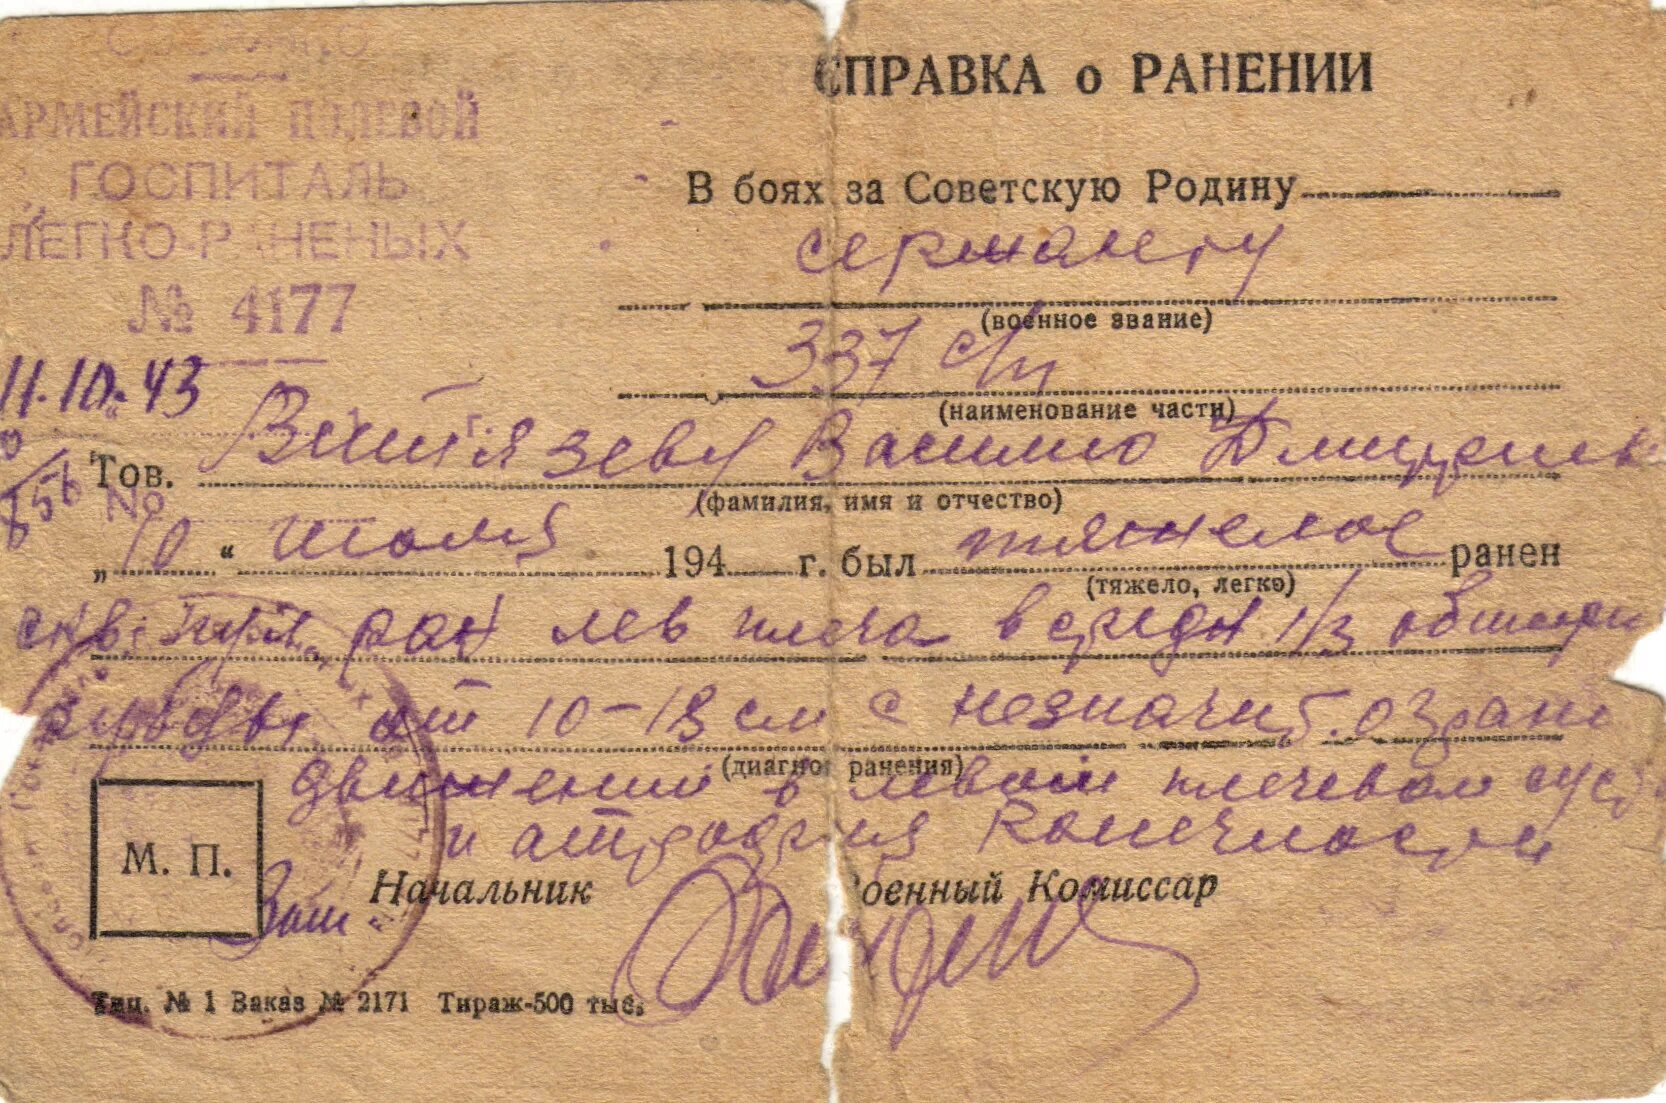 АРМЕЙСКИЙ ПОЛЕВОЙ
ГОСПИТАЛЬ
ЛЕГКО-РАНЕНЫХ
№ 4177
11.10.43
856 №
СПРАВКА о РАНЕНИИ
В боях за Советскую Родину
сержанту
(военное звание)
337 с/п
(наименование части)
Тов. Витязеву Василию Дмитриев
(фамилия, имя и отчество)
„10“ июля 194 г. был тяжелое ранен
(тяжело, легко)
скв. ран лев плеча в средн 1/3 обширн
от 10-18 см с незначит. огран
(диагноз ранения)
движений в левом плечевом суст
и атрофия конечности
М. П.
Зам. Начальник Военный Комиссар
Тип. № 1 Заказ № 2171 Тираж-500 тыс.